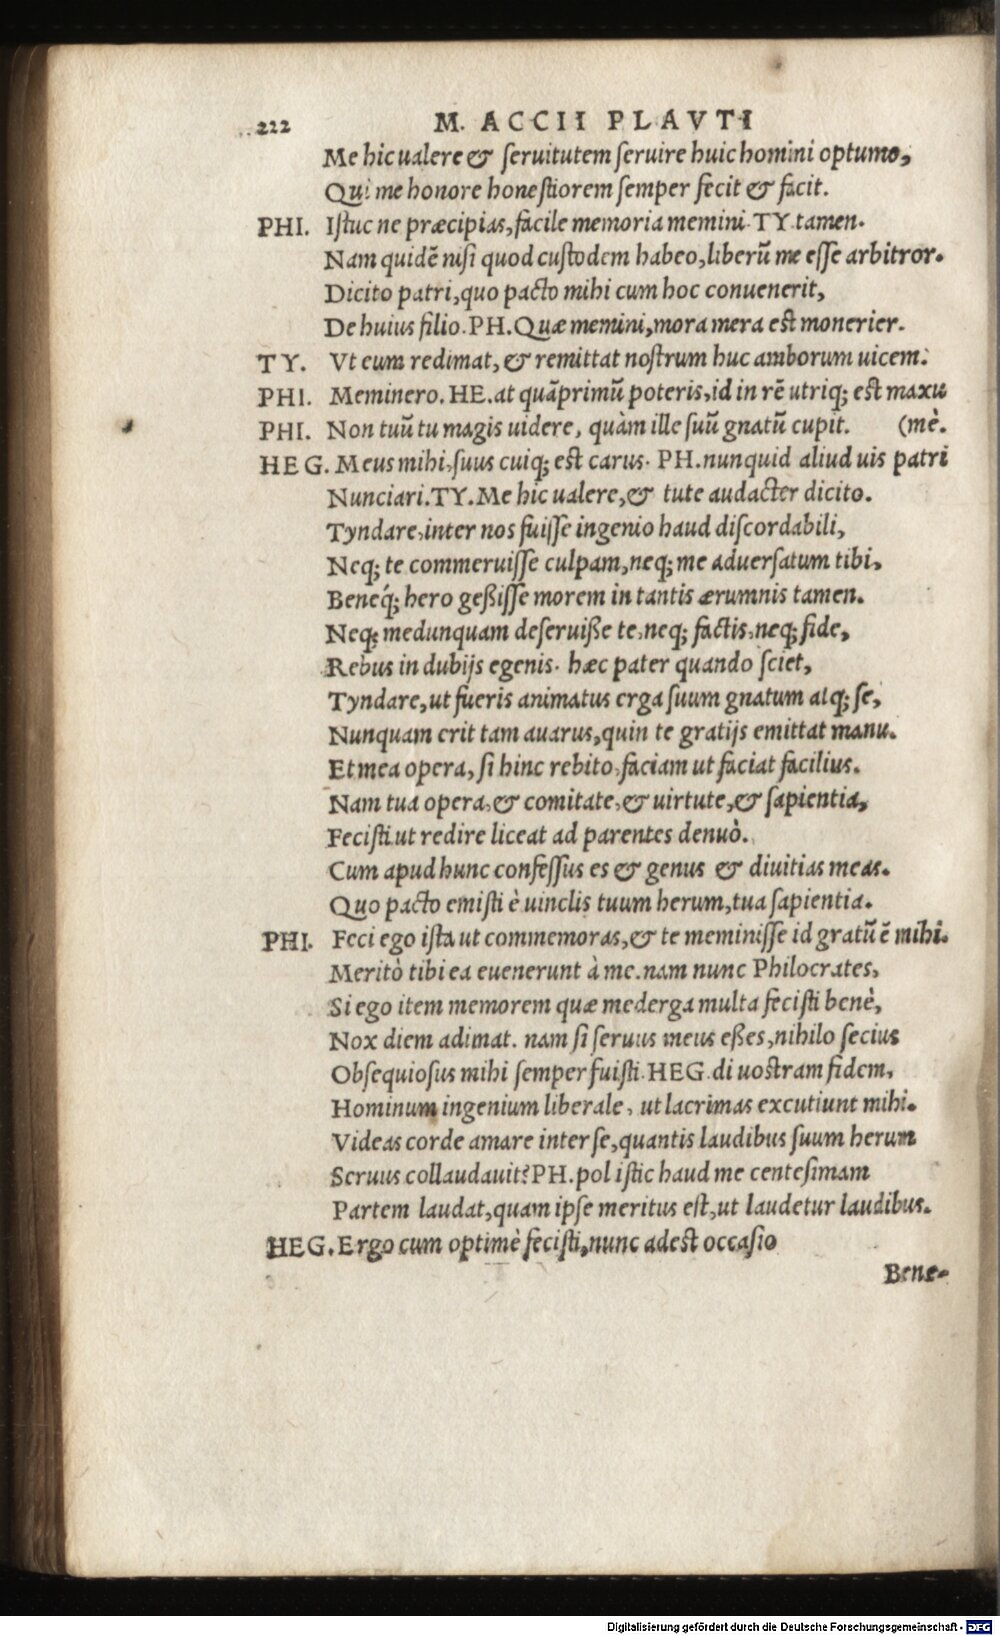 222 M. ACCII PLAVTI
Me hic ualere & ſeruitutem ſeruire huic homini optumo,
Qui me honore honeſtiorem ſemper fecit & facit.
PHI. Iſtuc ne præcipias, facile memoria memini. TY. tamen.
Nam quidẽ niſi quod cuſtodem habeo, liberũ me eſſe arbitror.
Dicito patri, quo pacto mihi cum hoc conuenerit,
De huius filio. PH. Quæ memini, mora mera eſt monerier.
TY. Vt eum redimat, & remittat noſtrum huc amborum uicem.
PHI. Meminero. HE. at quãprimũ poteris, id in rẽ utriq; eſt maxu
PHI. Non tuũ tu magis uidere, quàm ille ſuũ gnatũ cupit. (mè.
HEG. Meus mihi, ſuus cuiq; eſt carus. PH. nunquid aliud uis patri
Nunciari. TY. Me hic ualere, & tute audacter dicito.
Tyndare, inter nos fuiſſe ingenio haud diſcordabili,
Neq; te commeruiſſe culpam, neq; me aduerſatum tibi,
Beneq́; hero geßiſſe morem in tantis ærumnis tamen.
Neq; medunquam deſeruiße te, neq; factis, neq; fide,
Rebus in dubijs egenis. hæc pater quando ſciet,
Tyndare, ut fueris animatus erga ſuum gnatum atq; ſe,
Nunquam erit tam auarus, quin te gratijs emittat manu.
Et mea opera, ſi hinc rebito, faciam ut faciat facilius.
Nam tua opera, & comitate, & uirtute, & ſapientia,
Feciſti ut redire liceat ad parentes denuò.
Cum apud hunc confeſſus es & genus & diuitias meas.
Quo pacto emiſti è uinclis tuum herum, tua ſapientia.
PHI. Feci ego iſta ut commemoras, & te meminiſſe id gratũ ẽ mihi.
Meritò tibi ea euenerunt à me. nam nunc Philocrates,
Si ego item memorem quæ mederga multa feciſti benè,
Nox diem adimat. nam ſi ſeruus meus eßes, nihilo ſecius
Obſequioſus mihi ſemper fuiſti. HEG. di uoſtram fidem,
Hominum ingenium liberale, ut lacrimas excutiunt mihi.
Videas corde amare inter ſe, quantis laudibus ſuum herum
Seruus collaudauit? PH. pol iſtic haud me centeſimam
Partem laudat, quam ipſe meritus eſt, ut laudetur laudibus.
HEG. Ergo cum optimè feciſti, nunc adeſt occaſio
Bene-
Digitalisierung gefördert durch die Deutsche Forschungsgemeinschaft - DFG